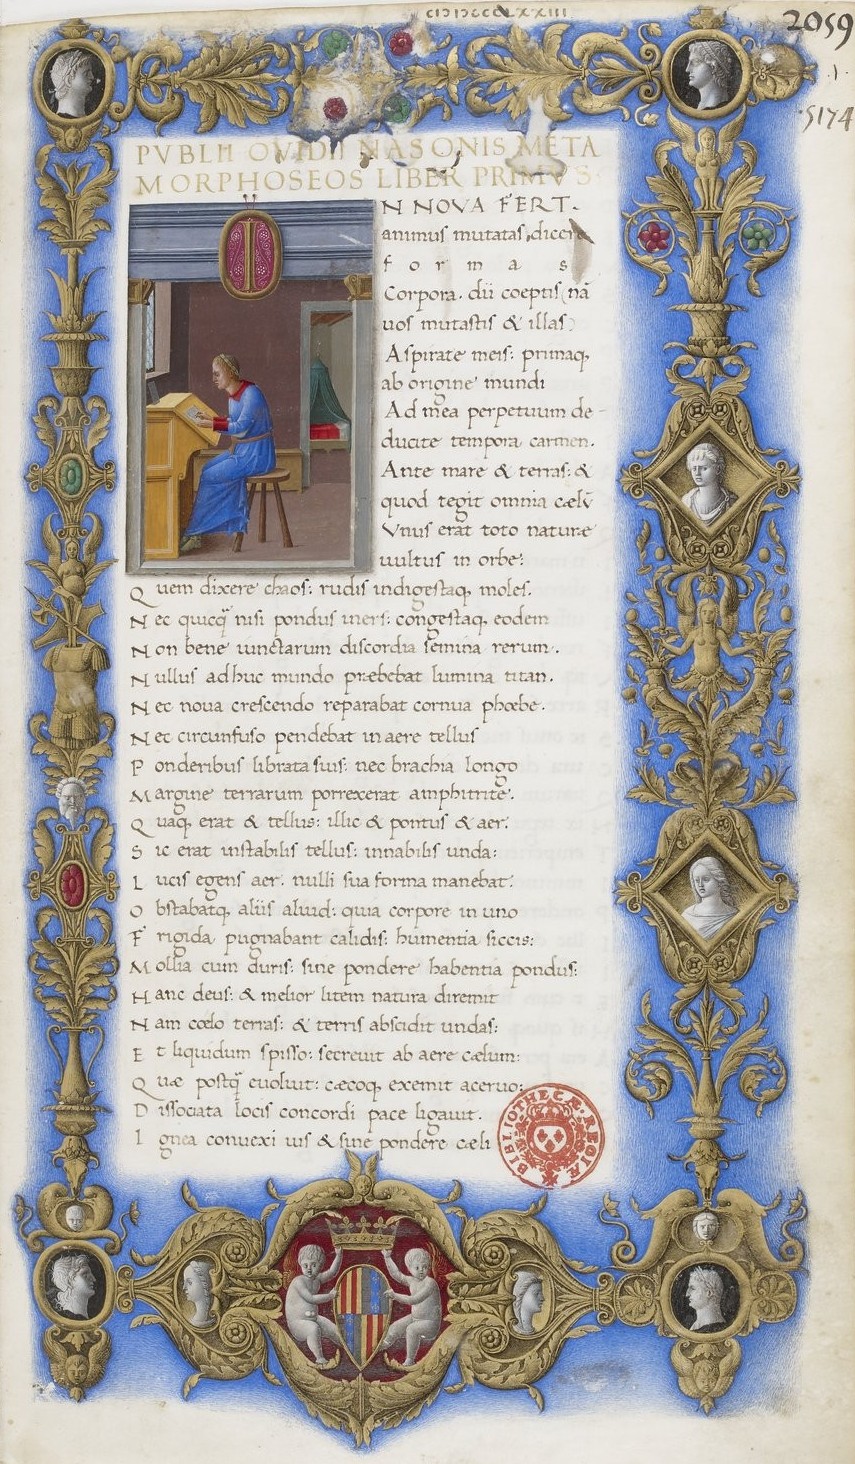 CIƆIƆCCCLXXIII
2059
.1.
5174
PVBLII OVIDII NASONIS META
MORPHOSEOS LIBER PRIMVS
I
N NOVA FERT.
animus mutatas dicere
f o r m a s
Corpora. dii coeptis (nã
uos mutastis & illas)
Aspirate meis: primaq;
ab origine mundi
Ad mea perpetuum de-
ducite tempora carmen.
Ante mare & terras: &
quod tegit omnia cælũ
Vnus erat toto naturæ
uultus in orbe:
Quem dixere chaos: rudis indigestaq; moles.
Nec quicq̃ nisi pondus iners: congestaq; eodem
Non bene iunctarum discordia semina rerum.
Nullus adhuc mundo præbebat lumina titan.
Nec noua crescendo reparabat cornua phœbe.
Nec circunfuso pendebat in aere tellus
Ponderibus librata suis: nec brachia longo
Margine terrarum porrexerat amphitrite.
Quaq; erat & tellus: illic & pontus & aer.
Sic erat instabilis tellus: innabilis unda:
Lucis egens aer. nulli sua forma manebat:
Obstabatq; aliis aliud: quia corpore in uno
Frigida pugnabant calidis: humentia siccis:
Mollia cum duris: sine pondere habentia pondus:
Hanc deus: & melior litem natura diremit
Nam cœlo terras: & terris abscidit undas:
Et liquidum spisso: secreuit ab aere cælum:
Quæ postq̃ euoluit: cæcoq; exemit aceruo:
Dissociata locis concordi pace ligauit.
Ignea conuexi uis & sine pondere cæli
BIBLIOTHECÆ REGIÆ